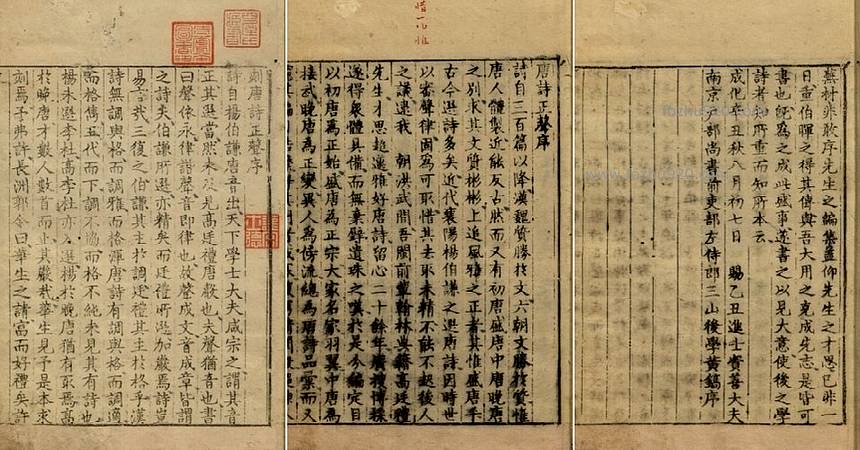 刻唐詩正聲序
詩自揚伯謙唐音出天下學士大夫咸宗之謂其音
正其選當然未及見高廷禮唐聲也夫聲猶音也書
曰聲依永律諧聲音即律也故聲成文音成章皆謂
之詩夫伯謙所選亦精矣而廷禮所選加嚴焉詩豈
易言哉三復之伯謙其主於調廷禮其主於格乎漢
詩無調與格而調雅而格渾唐詩有調與格而調適
而格雋五代而下調不協而格不純未見其有詩也
楊未選李杜高李杜亦入選楊於晚唐猶有取焉高
於晚唐才數人數首而止其嚴哉華生見予是本求
刻焉予弗許長洲郭令曰華生之請富而好禮矣許
唐詩正聲序
詩自三百篇以降漢魏質勝於文六朝文勝於質惟
唐人體製近能反古然而又有初唐盛唐中唐晚唐
之別求其文質彬彬上追風雅之正者其惟盛唐乎
古今選詩多矣近代襄陽楊伯謙之選唐詩因時世
以審聲律固爲可取惜其去取未精不能不起後人
之議逮我 朝洪武間吾閩前輩翰林典籍高廷禮
先生才思超邁雅好唐詩留心二十餘年廣搜博採
遂得衆體具備而無棄璧遺珠之嘆於是今編定目
以初唐爲正始盛唐爲正宗大家名家羽翼中唐爲
接武晚唐爲正變異人爲傍流總爲唐詩品彙而又
蕪材非敢序先生之編集蓋仰先生之才思已非一
日重伯暉之得其傳與吾大用之克成先志是皆可
書也既寫之成此盛事遂書之以見大意使後之學
詩者知所重而知所本云
成化辛丑秋八月初七日 賜乙丑進士資善大夫
南京戶部尚書前吏部左侍郎三山後學黃鎬序